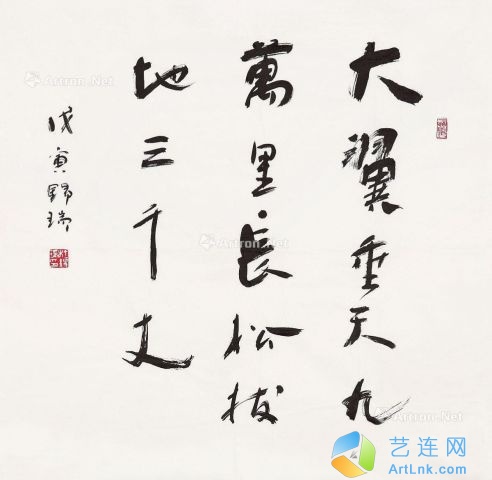 大翼垂天九
萬里長松拔
地三千丈
戊寅歸瑞
Artron.Net
Artron.Net
Artron.Net
Artron.Net
艺连网
ArtLnk.com